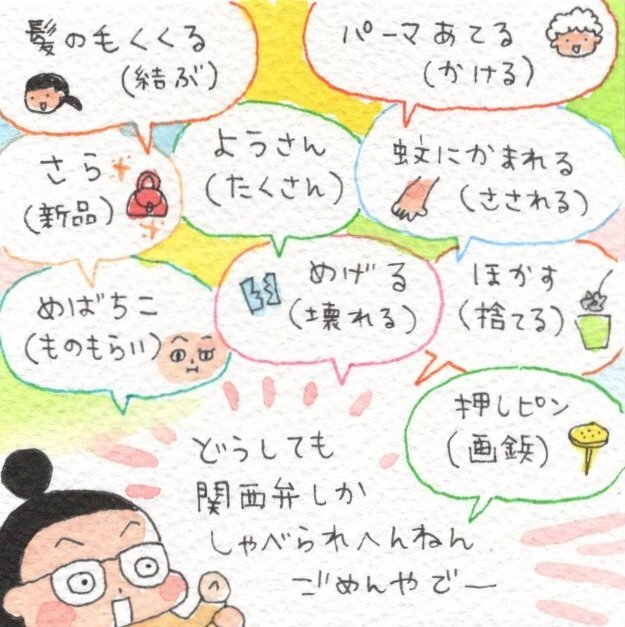 髪の毛くくる
(結ぶ)
パーマあてる
(かける)
さら
(新品)
ようさん
(たくさん)
蚊にかまれる
(さされる)
めばちこ
(ものもらい)
めげる
(壊れる)
ほかす
(捨てる)
押しピン
(画鋲)
どうしても
関西弁しか
しゃべられへんねん
ごめんやでー